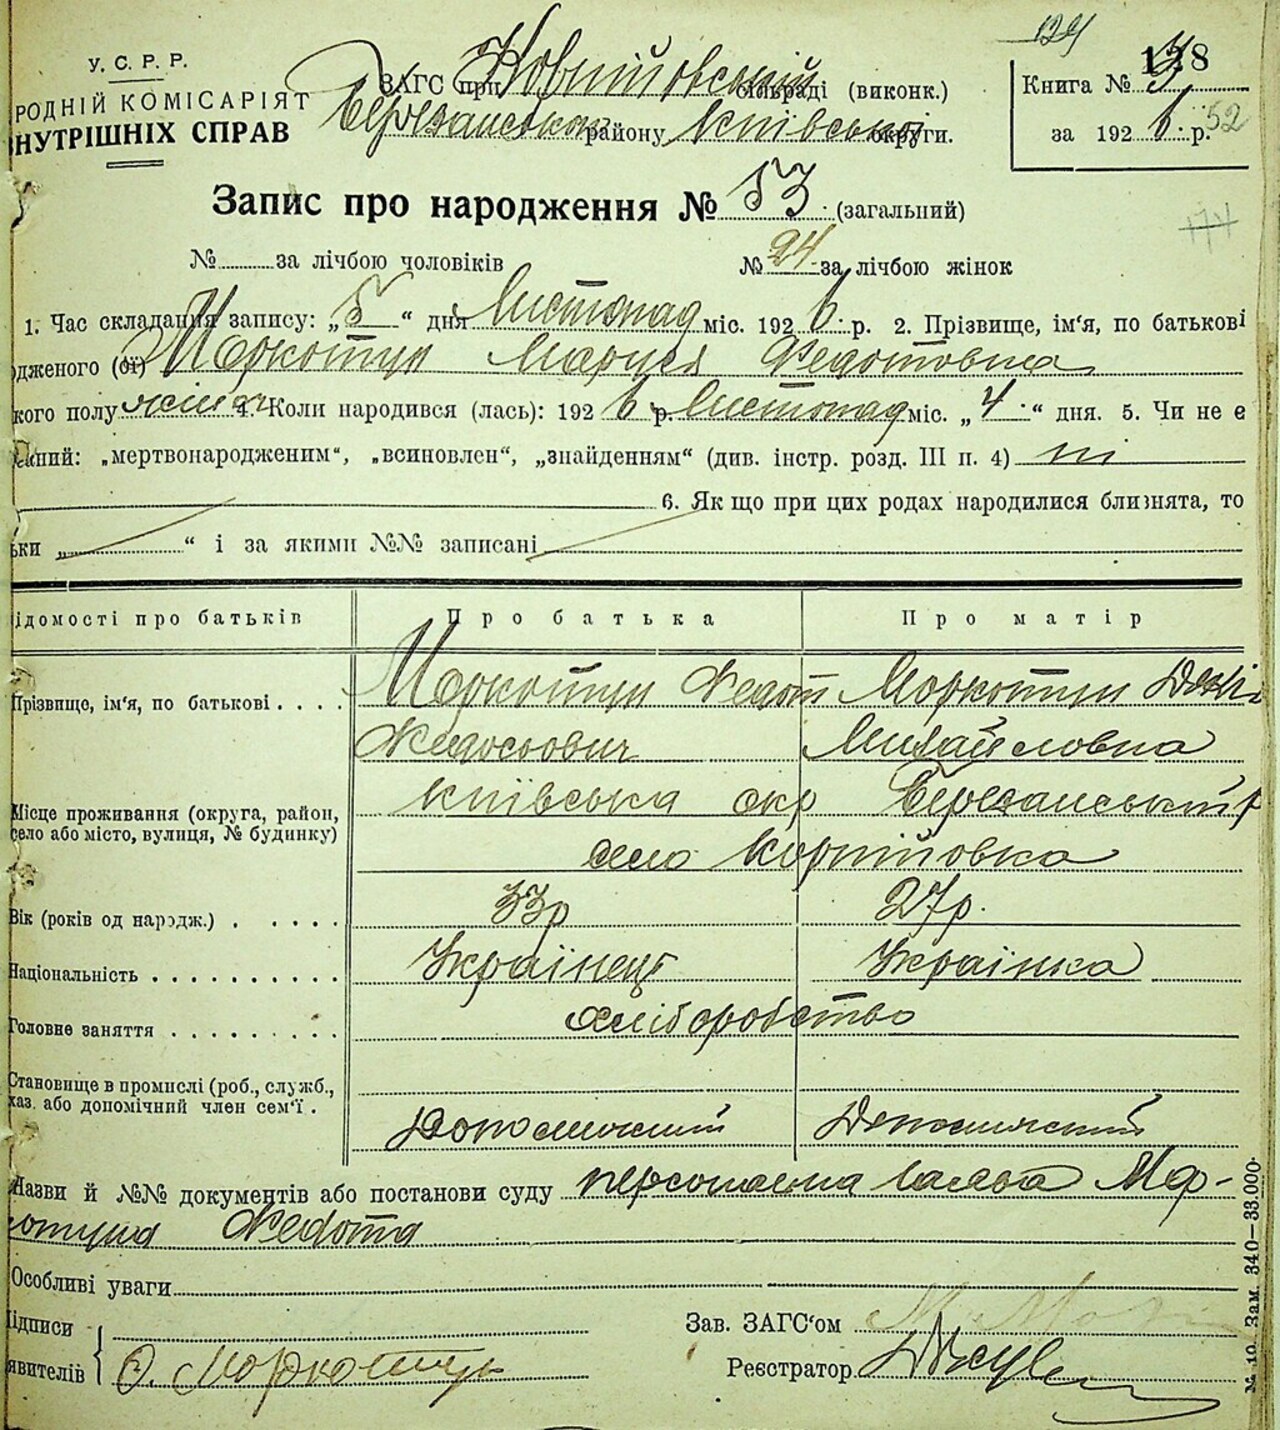 124
У. С. Р. Р.
РОДНІЙ КОМІСАРІЯТ
ВНУТРІШНІХ СПРАВ
ЗАГС при сільраді (виконк.)
Березанського району Київської округи.
128
Книга № 3
за 1926 р.
52
Запис про народження № 53 (загальний)
174
№ за лічбою чоловіків № 24 за лічбою жінок
1. Час складання запису: „5“ дня Листопад міс. 1926 р. 2. Прізвище, ім'я, по батькові
дженого (ої) Маркотун Мария Федотовна
кого полу жіноч. 4. Коли народився (лась): 1926 р. Листопад міс. „4“ дня. 5. Чи не є
ний: „мертвонародженим“, „всиновлен“, „знайденням“ (див. інстр. розд. III п. 4) ні
6. Як що при цих родах народилися близнята, то
ьки „ “ і за якими №№ записані
ідомості про батьків Про батька Про матір
Прізвище, ім'я, по батькові . . . . Маркотун Федот Маркотун
Федосьович Михайловна
Місце проживання (округа, район,
село або місто, вулиця, № будинку)
Київська окр Березанський р
село Корніївка
Вік (років од народж.) . . . . . 33р 27р.
Національність . . . . . . . . . . Українець Українка
Головне заняття . . . . . . . . . хліборобство
Становище в промислі (роб., служб.,
хаз. або допомічний член сем'ї .
Допомічний Допомічний
Назви й №№ документів або постанови суду персональна заява Мар-
котуна Федота
Особливі уваги
ідписи
явителів
Ф. Маркотун
Зав. ЗАГС'ом
Реєстратор
№ 10. Зам. 340—33.000.